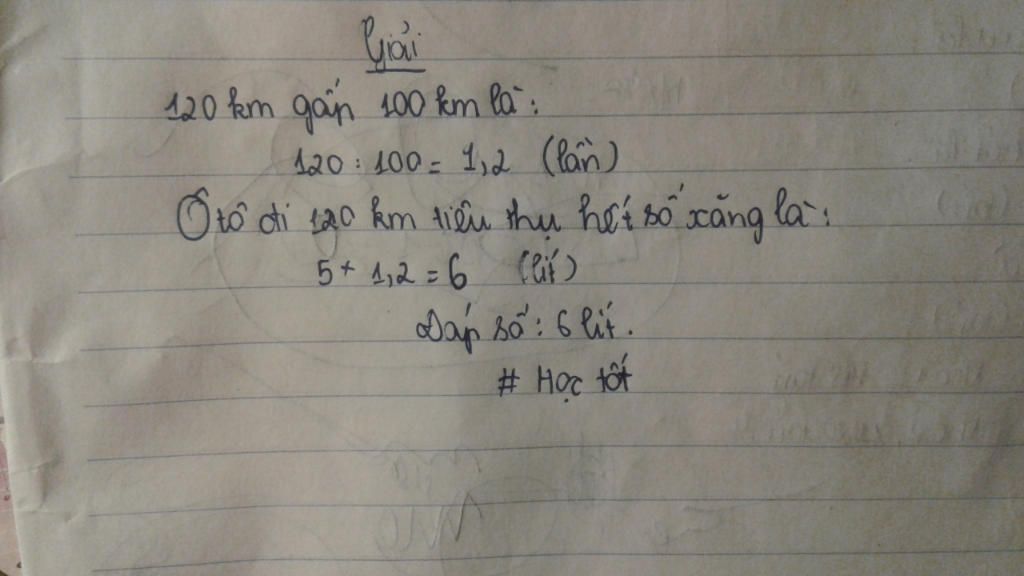 Giải
120 km gấp 100 km là:
120 : 100 = 1,2 (lần)
Ô tô đi 120 km tiêu thụ hết số xăng là:
5 + 1,2 = 6 (lít)
Đáp số: 6 lít.
# Học tốt